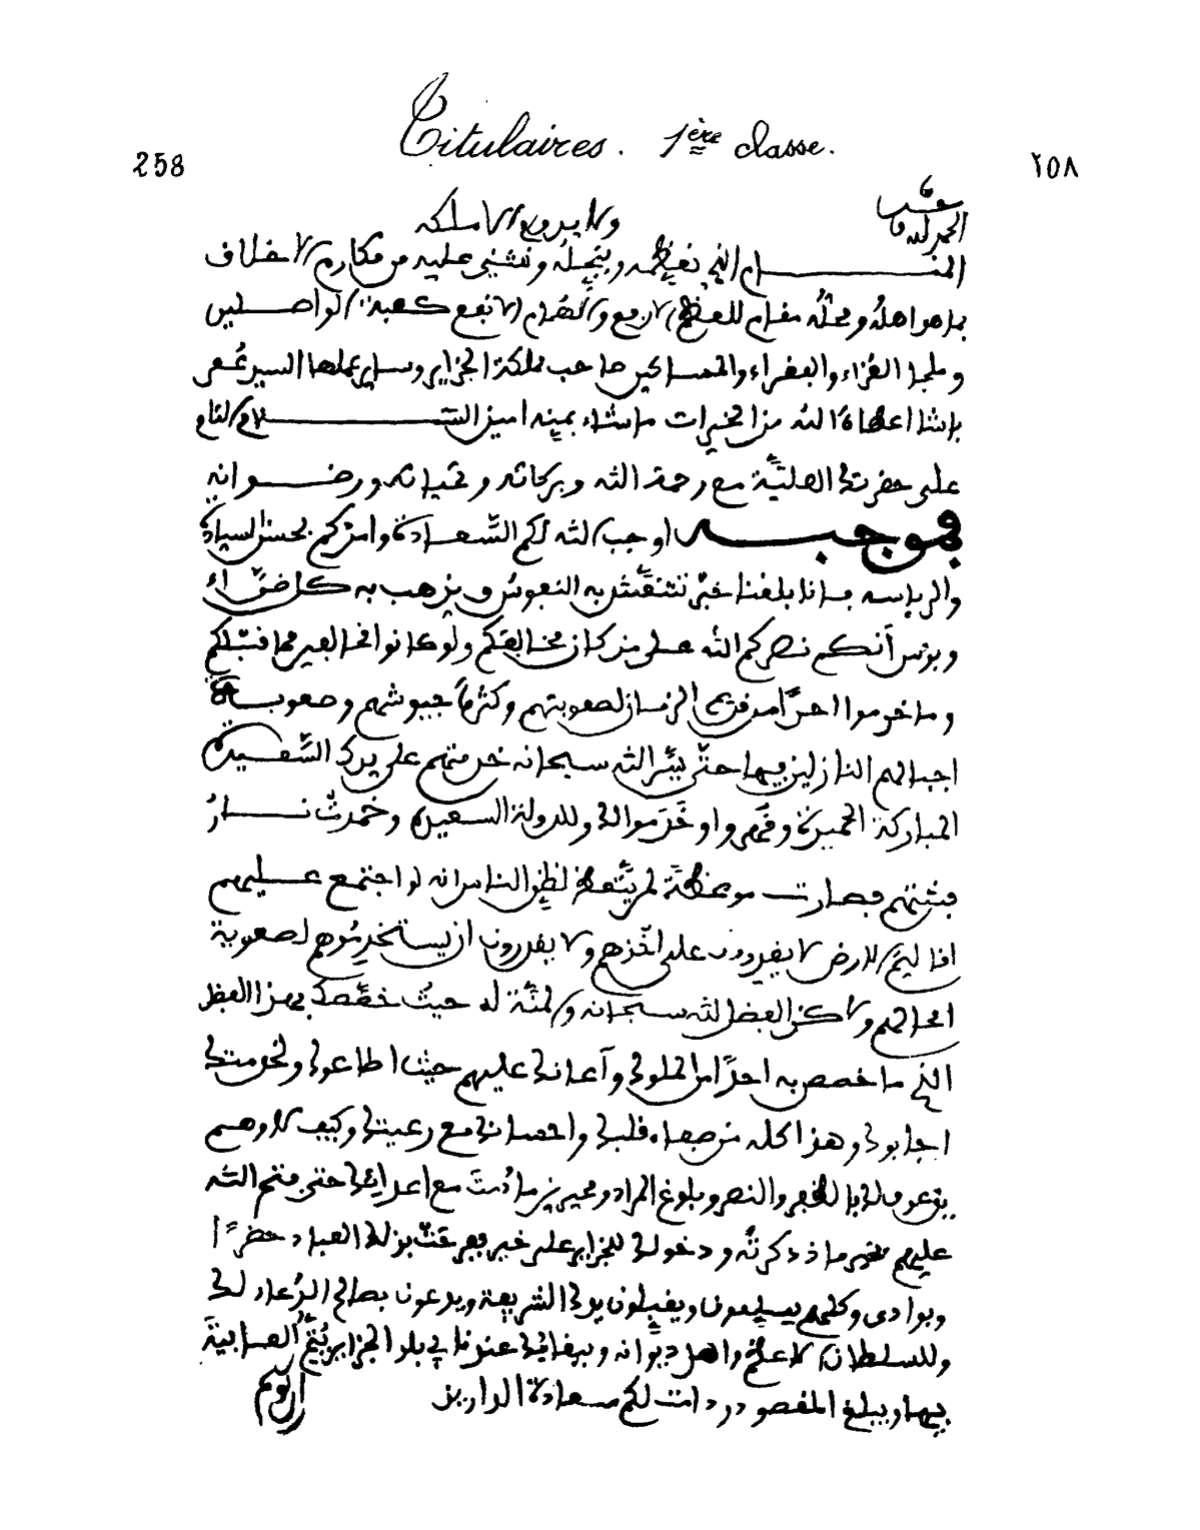 Titulaires. 1ère classe.
258
٢٥٨
الحمد لله وحده
ولا يدوم الا ملكه
المقام الذي نعظمه ونبجله ونثني عليه من مكارم الاخلاق
بما هو اهله ومحله مقام المعظم الارفع والهمام الانفع كعبة الواصلين
وملجا الغزاء والفقراء والمساكين صاحب مملكة الجزاير وساير عملها السيد عمر
باشا اعطاه الله من الخيرات ما شاء بمنه امين السلام التام
على حضرتك العلية مع رحمة الله وبركاته وتحياته ورضوانه
فموجبه اوجب الله لكم السعادة وامركم بحسن السيادة
والرياسه باننا بلغنا خبر تنتقش به النفوس ويذهب به كل ضراء
وبوس انكم نصركم الله على من كان مخالفكم ولو كانوا فى الغير مما قبلكم
وما خدموا احدا من قديم الزمان لصعوبتهم وكثرة جيوشهم وصعوبة
اجبالهم النازلين بها حتى يسر الله سبحانه خدمتهم على يدك السعيدة
المباركة الحميدة وقهروا وخدموا لك وللدولة السعيدة وخمدت نار
فتنتهم فصارت موعظة لمن يتعظ لظن الناس انه لو اجتمع عليهم
اقاليم الارض لا يقدرون على اخذهم ولا يقدرون ان يستخدموهم لصعوبة
امحالهم ولاكن الفضل لله سبحانه والمنة له حيث خصصك بهذا الفضل
الذي ما خصص به احدا من الملوك وأعانك عليهم حيث اطاعوك ولخدمتك
اجابوك وهذا كله من صفاء قلبك واحسانك مع رعيتك وكيف لا وهم
يدعون لك بالظفر والنصر وبلوغ المراد ومحبين ما دمت مع اعدائك حتى فتح الله
عليهم بخير ما ذكرته ودخولك للجزاير على خير ففرحت بذلك العباد حضرًا
وبوادى وكلهم يسمعون ويقبلون يدك الشريفة ويدعون بصالح الدعاء لك
وللسلطان الاعظم واهل ديوانه وببقائك عندنا في بلد الجزاير يتم العافية
بها ويبلغ المقصود ودامت لكم سعادة الدارين